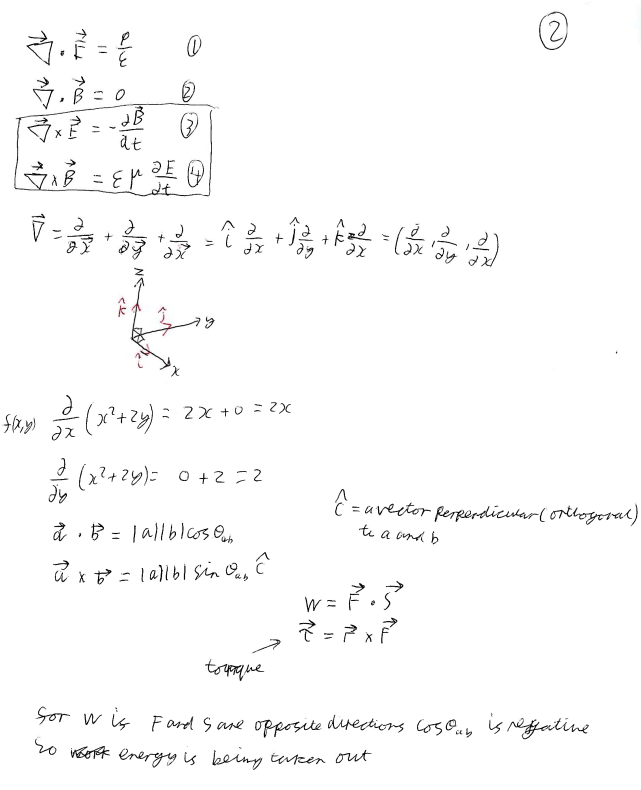 ②
∇⃗ · E⃗ = ρ/ε ①
∇⃗ · B⃗ = 0 ②
∇⃗ × E⃗ = -∂B⃗/∂t ③
∇⃗ × B⃗ = εμ ∂E/∂t ④
∇⃗ = ∂/∂x⃗ + ∂/∂y⃗ + ∂/∂x⃗ = î ∂/∂x + ĵ ∂/∂y + k̂ ∂/∂x = (∂/∂x, ∂/∂y, ∂/∂x)
z
k̂ ĵ y
î x
f(x,y) ∂/∂x (x²+2y) = 2x+0 = 2x
∂/∂y (x²+2y) = 0+2 = 2
a⃗ · b⃗ = |a||b|cosθab
a⃗ × b⃗ = |a||b| sinθab ĉ
ĉ = a vector perperdicular (orthogonal)
to a and b
W = F⃗ · S⃗
τ⃗ = r⃗ × F⃗
torque
for W is F and S are opposite directions cosθab is negative
so energy is being taken out